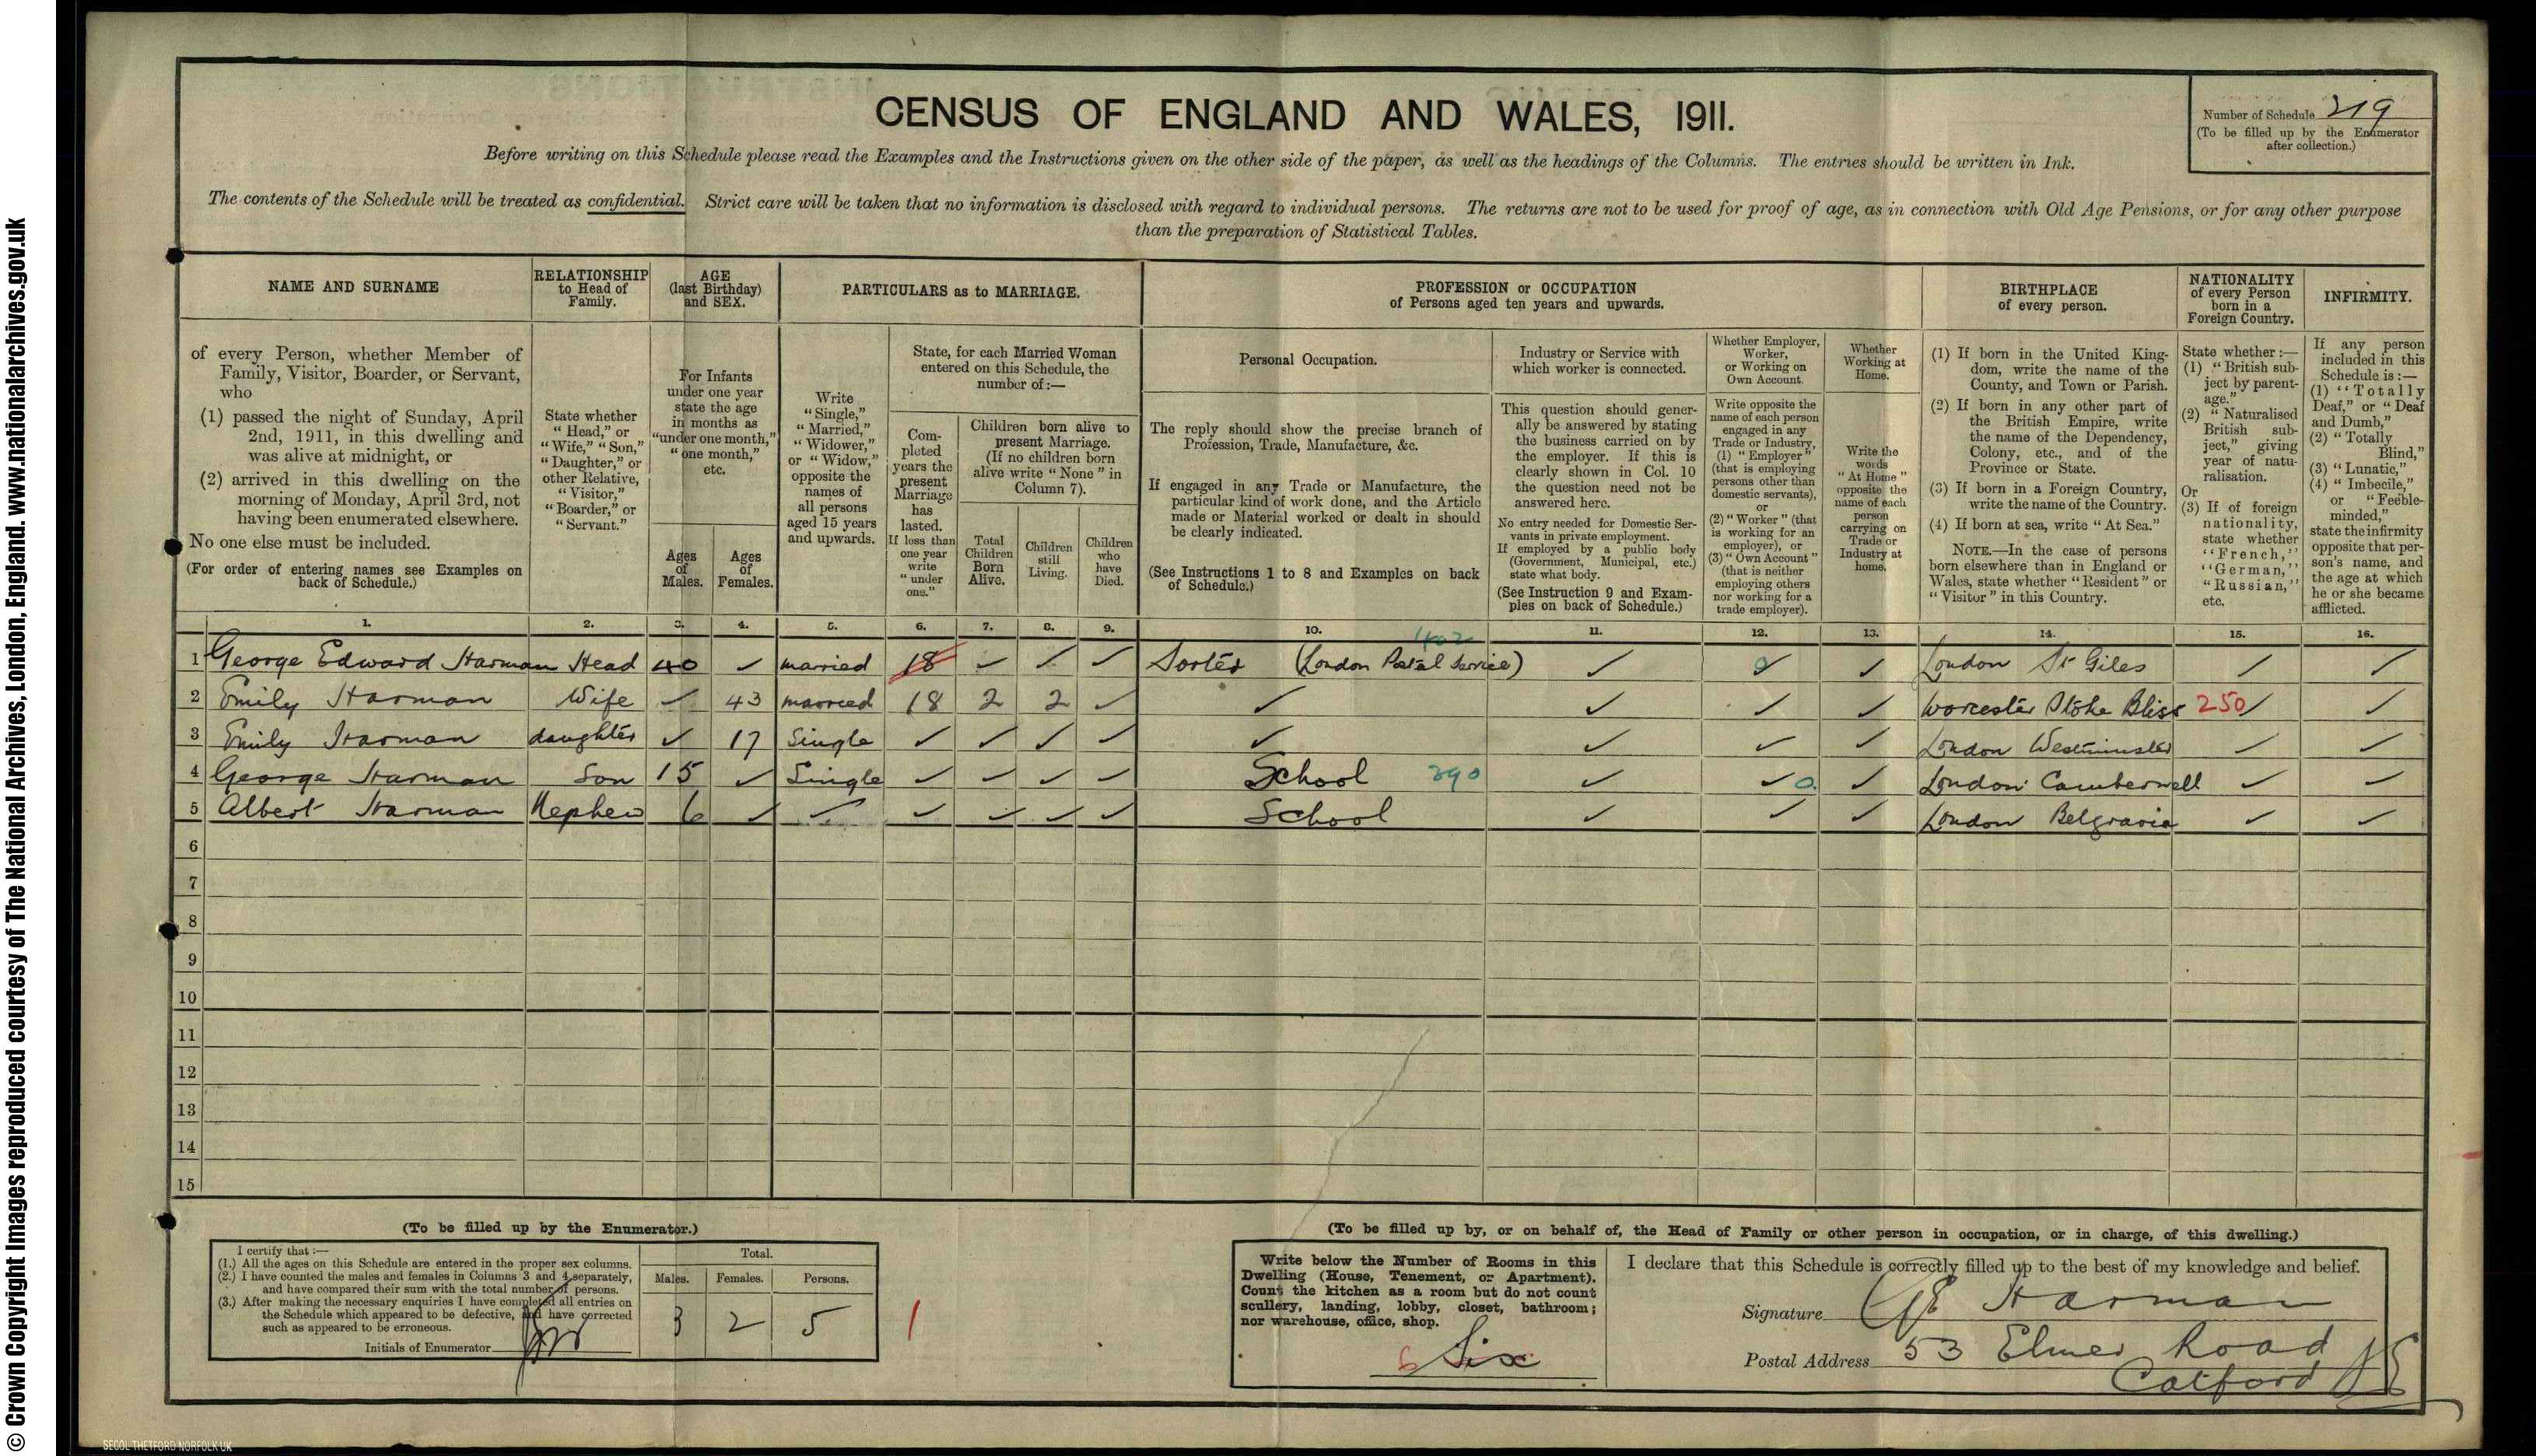 © Crown Copyright Images reproduced courtesy of The National Archives, London, England. www.nationalarchives.gov.uk
CENSUS OF ENGLAND AND WALES, 1911.
Number of Schedule 219
(To be filled up by the Enumerator
after collection.)
Before writing on this Schedule please read the Examples and the Instructions given on the other side of the paper, as well as the headings of the Columns. The entries should be written in Ink.
The contents of the Schedule will be treated as confidential. Strict care will be taken that no information is disclosed with regard to individual persons. The returns are not to be used for proof of age, as in connection with Old Age Pensions, or for any other purpose
than the preparation of Statistical Tables.
NAME AND SURNAME
of every Person, whether Member of
Family, Visitor, Boarder, or Servant,
who
(1) passed the night of Sunday, April
2nd, 1911, in this dwelling and
was alive at midnight, or
(2) arrived in this dwelling on the
morning of Monday, April 3rd, not
having been enumerated elsewhere.
No one else must be included.
(For order of entering names see Examples on
back of Schedule.)
RELATIONSHIP
to Head of
Family.
State whether
"Head," or
"Wife," "Son,"
"Daughter," or
other Relative,
"Visitor,"
"Boarder," or
"Servant."
AGE
(last Birthday)
and SEX.
For Infants
under one year
state the age
in months as
"under one month,"
"one month,"
etc.
Ages
of
Males.
Ages
of
Females.
PARTICULARS as to MARRIAGE.
Write
"Single,"
"Married,"
"Widower,"
or "Widow,"
opposite the
names of
all persons
aged 15 years
and upwards.
State, for each Married Woman
entered on this Schedule, the
number of:—
Com-
pleted
years the
present
Marriage
has
lasted.
If less than
one year
write
"under
one."
Children born alive to
present Marriage.
(If no children born
alive write "None" in
Column 7).
Total
Children
Born
Alive.
Children
still
Living.
Children
who
have
Died.
PROFESSION or OCCUPATION
of Persons aged ten years and upwards.
Personal Occupation.
The reply should show the precise branch of
Profession, Trade, Manufacture, &c.
If engaged in any Trade or Manufacture, the
particular kind of work done, and the Article
made or Material worked or dealt in should
be clearly indicated.
(See Instructions 1 to 8 and Examples on back
of Schedule.)
Industry or Service with
which worker is connected.
This question should gener-
ally be answered by stating
the business carried on by
the employer. If this is
clearly shown in Col. 10
the question need not be
answered here.
No entry needed for Domestic Ser-
vants in private employment.
If employed by a public body
(Government, Municipal, etc.)
state what body.
(See Instruction 9 and Exam-
ples on back of Schedule.)
Whether Employer,
Worker,
or Working on
Own Account.
Write opposite the
name of each person
engaged in any
Trade or Industry,
(1) "Employer"
(that is employing
persons other than
domestic servants),
or
(2) "Worker" (that
is working for an
employer), or
(3) "Own Account"
(that is neither
employing others
nor working for a
trade employer).
Whether
Working at
Home.
Write the
words
"At Home"
opposite the
name of each
person
carrying on
Trade or
Industry at
home.
BIRTHPLACE
of every person.
(1) If born in the United King-
dom, write the name of the
County, and Town or Parish.
(2) If born in any other part of
the British Empire, write
the name of the Dependency,
Colony, etc., and of the
Province or State.
(3) If born in a Foreign Country,
write the name of the Country.
(4) If born at sea, write "At Sea."
NOTE.—In the case of persons
born elsewhere than in England or
Wales, state whether "Resident" or
"Visitor" in this Country.
NATIONALITY
of every Person
born in a
Foreign Country.
State whether:—
(1) "British sub-
ject by parent-
age."
(2) "Naturalised
British sub-
ject," giving
year of natu-
ralisation.
Or
(3) If of foreign
nationality,
state whether
"French,"
"German,"
"Russian,"
etc.
INFIRMITY.
If any person
included in this
Schedule is:—
(1) "Totally
Deaf," or "Deaf
and Dumb,"
(2) "Totally
Blind,"
(3) "Lunatic,"
(4) "Imbecile,"
or "Feeble-
minded,"
state the infirmity
opposite that per-
son's name, and
the age at which
he or she became
afflicted.
1. 2. 3. 4. 5. 6. 7. 8. 9. 10. 11. 12. 13. 14. 15. 16.
1 George Edward Harman Head 40 married 18 Sorter (London Postal Service) London St Giles
2 Emily Harman Wife 43 married 18 2 2 Worcester Stoke Bliss 250
3 Emily Harman daughter 17 Single London Westminster
4 George Harman Son 15 Single School 390 0 London Camberwell
5 Albert Harman Nephew 6 School London Belgravia
6
7
8
9
10
11
12
13
14
15
(To be filled up by the Enumerator.)
I certify that:—
(1.) All the ages on this Schedule are entered in the proper sex columns.
(2.) I have counted the males and females in Columns 3 and 4 separately,
and have compared their sum with the total number of persons.
(3.) After making the necessary enquiries I have completed all entries on
the Schedule which appeared to be defective, and have corrected
such as appeared to be erroneous.
Initials of Enumerator
Total.
Males. Females. Persons.
3 2 5
(To be filled up by, or on behalf of, the Head of Family or other person in occupation, or in charge, of this dwelling.)
Write below the Number of Rooms in this
Dwelling (House, Tenement, or Apartment).
Count the kitchen as a room but do not count
scullery, landing, lobby, closet, bathroom;
nor warehouse, office, shop.
6 Six
I declare that this Schedule is correctly filled up to the best of my knowledge and belief.
Signature GE Harman
Postal Address 53 Elmer Road
Catford SE
SECOL THETFORD NORFOLK UK